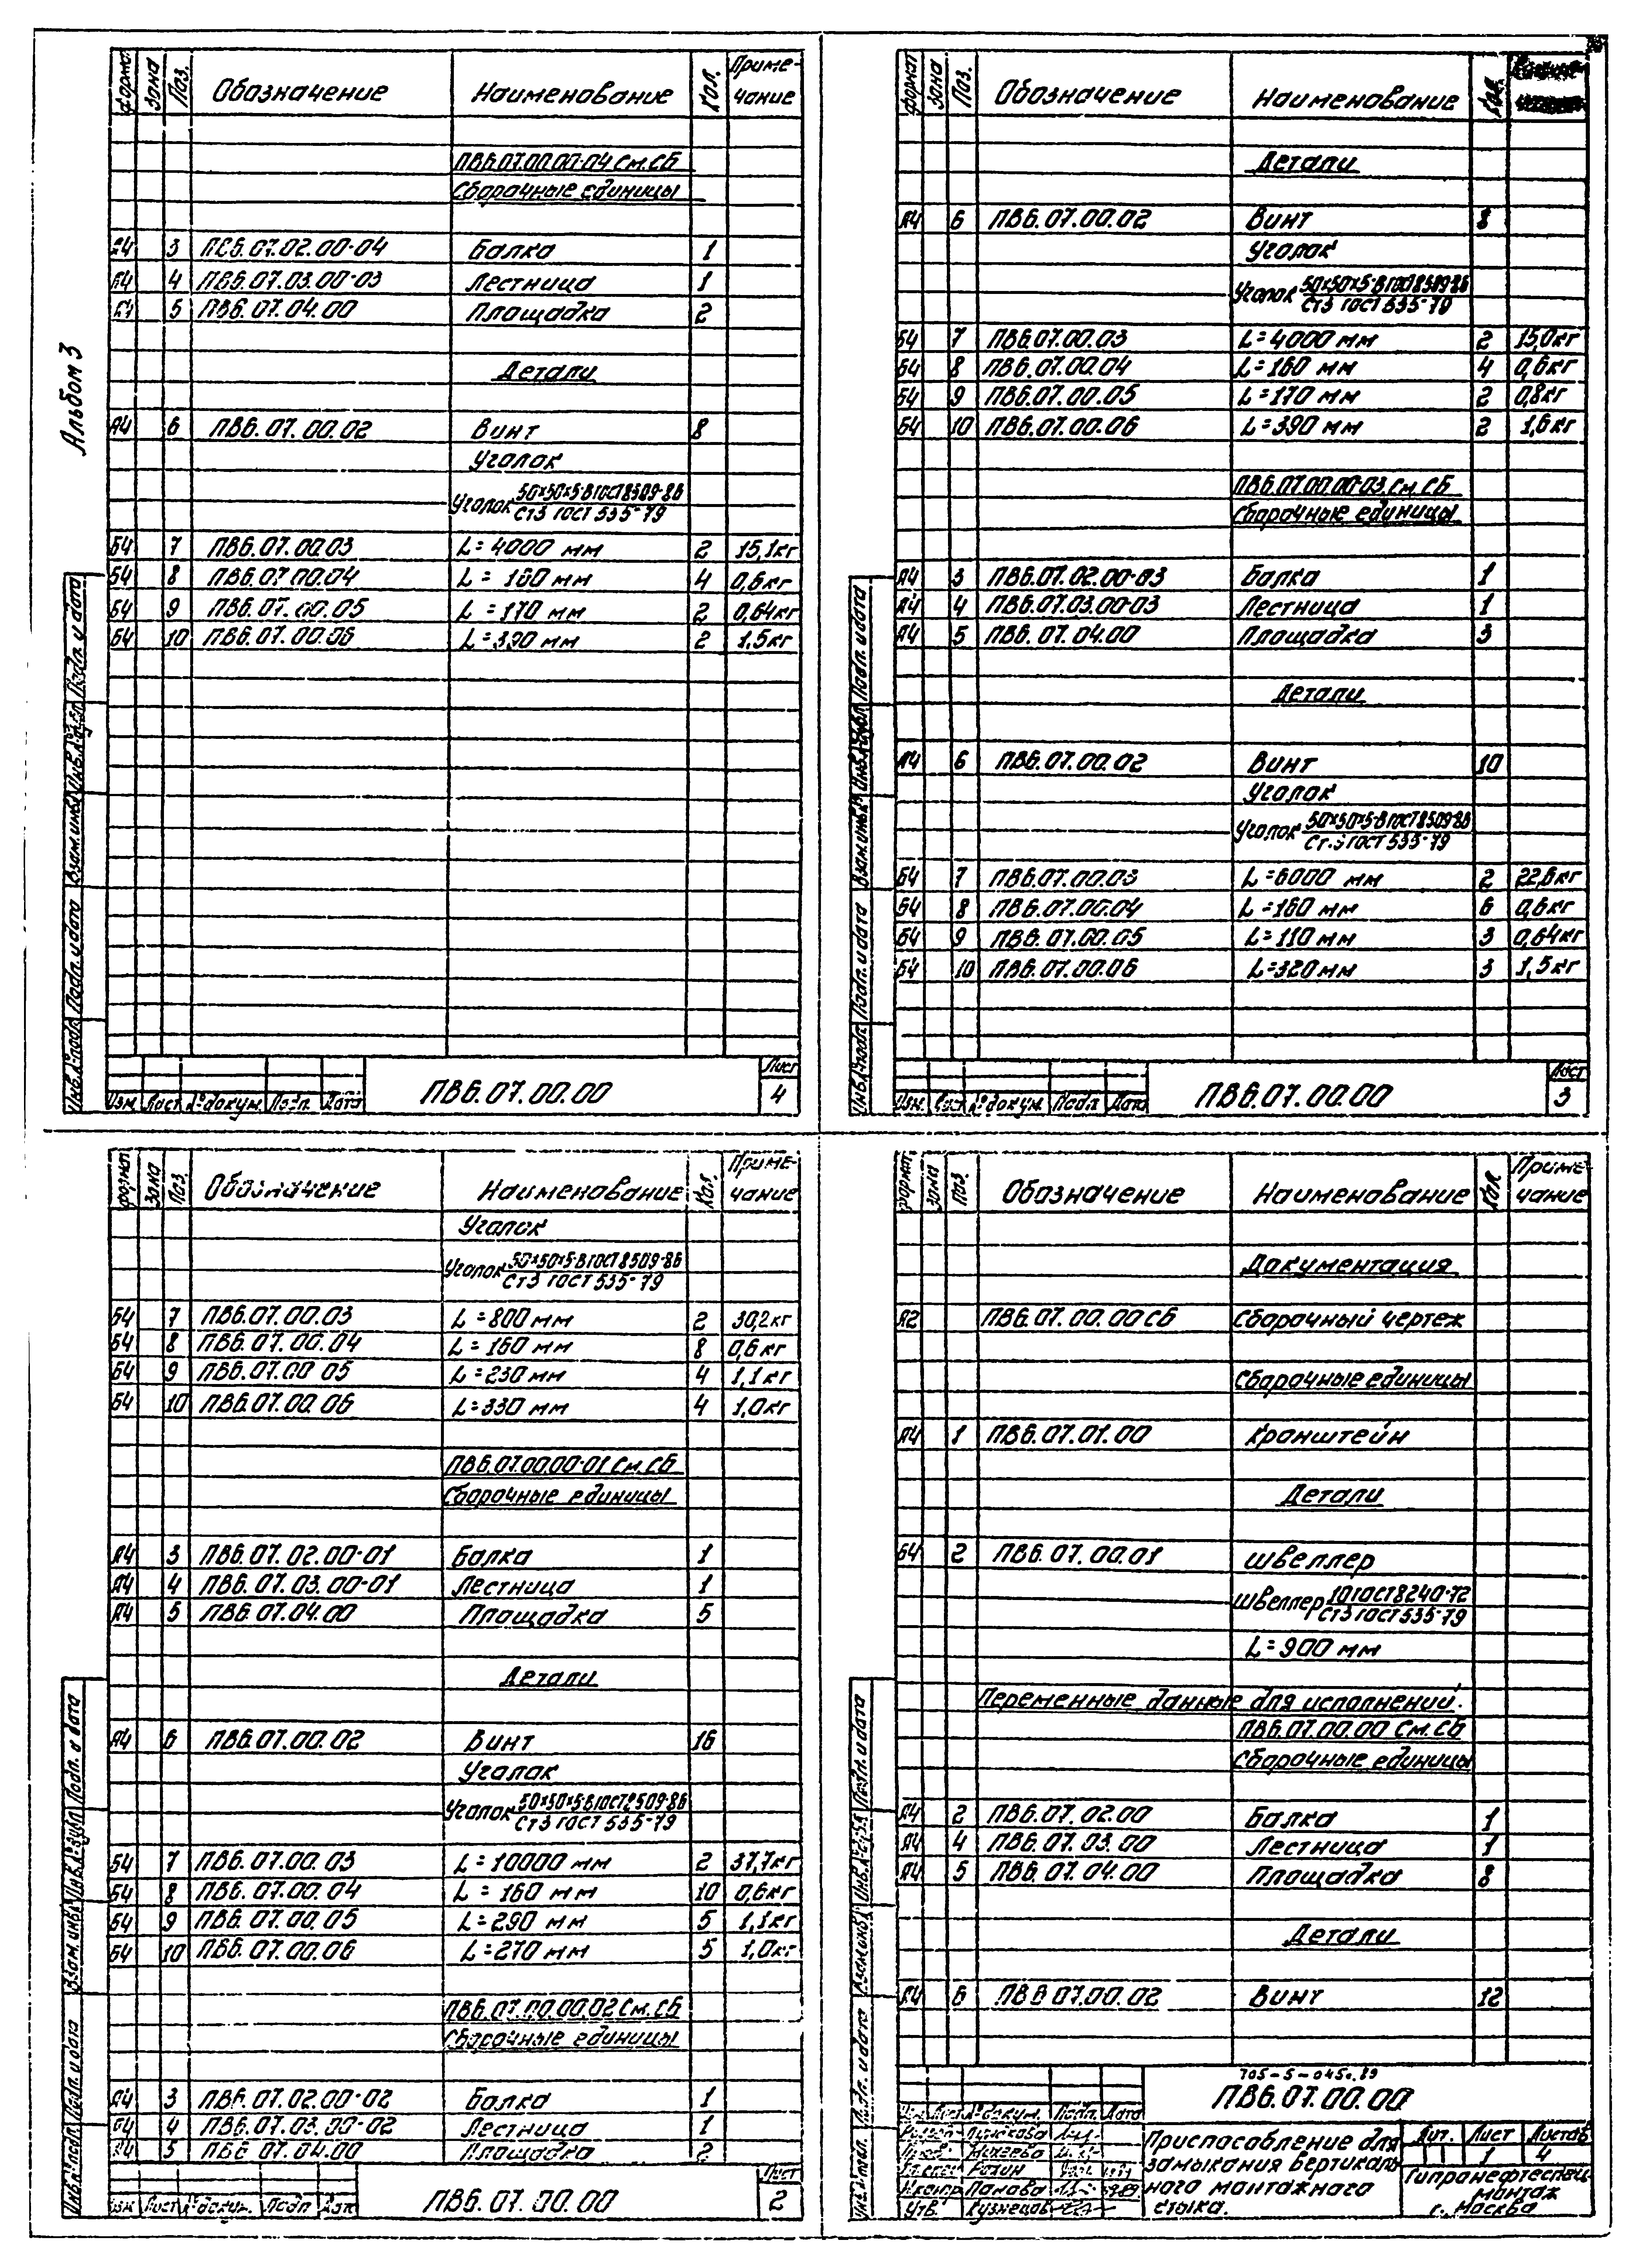 Альбом 3
Формат Зона Поз. Обозначение Наименование Кол. Приме-
чание
ПВ6.07.00.00-04 См.СБ
Сборочные единицы
А4 3 ПВ6.07.02.00-04 Балка 1
А4 4 ПВ6.07.03.00-03 Лестница 1
А4 5 ПВ6.07.04.00 Площадка 2
Детали
А4 6 ПВ6.07.00.02 Винт 8
Уголок
Уголок 50×50×5-В ГОСТ 8509-86
Ст3 ГОСТ 535-79
Б4 7 ПВ6.07.00.03 L=4000 мм 2 15,1кг
Б4 8 ПВ6.07.00.04 L=160 мм 4 0,6кг
Б4 9 ПВ6.07.00.05 L=170 мм 2 0,64кг
Б4 10 ПВ6.07.00.06 L=390 мм 2 1,5кг
Инв.№подл. Подп. и дата Взам.инв.№ Инв.№дубл. Подп. и дата
Изм. Лист №докум. Подп. Дата
ПВ6.07.00.00
Лист
4
Формат Зона Поз. Обозначение Наименование Кол.
Детали
А4 6 ПВ6.07.00.02 Винт 8
Уголок
Уголок 50×50×5-В ГОСТ 8509-86
Ст3 ГОСТ 535-79
Б4 7 ПВ6.07.00.03 L=4000 мм 2 15,0кг
Б4 8 ПВ6.07.00.04 L=160 мм 4 0,6кг
Б4 9 ПВ6.07.00.05 L=170 мм 2 0,8кг
Б4 10 ПВ6.07.00.06 L=390 мм 2 1,6кг
ПВ6.07.00.00-03 См.СБ
Сборочные единицы
А4 3 ПВ6.07.02.00-03 Балка 1
А4 4 ПВ6.07.03.00-03 Лестница 1
А4 5 ПВ6.07.04.00 Площадка 3
Детали
А4 6 ПВ6.07.00.02 Винт 10
Уголок
Уголок 50×50×5-В ГОСТ 8509-86
Ст.3 ГОСТ 535-79
Б4 7 ПВ6.07.00.03 L=6000 мм 2 22,6кг
Б4 8 ПВ6.07.00.04 L=160 мм 6 0,6кг
Б4 9 ПВ6.07.00.05 L=110 мм 3 0,64кг
Б4 10 ПВ6.07.00.06 L=320 мм 3 1,5кг
Инв.№подл. Подп. и дата Взам.инв.№ Инв.№дубл. Подп. и дата
Изм. Лист №докум. Подп. Дата
ПВ6.07.00.00
Лист
3
Формат Зона Поз. Обозначение Наименование Кол. Приме-
чание
Уголок
Уголок 50×50×5-В ГОСТ 8509-86
Ст3 ГОСТ 535-79
Б4 7 ПВ6.07.00.03 L=800 мм 2 30,2кг
Б4 8 ПВ6.07.00.04 L=160 мм 8 0,6кг
Б4 9 ПВ6.07.00 05 L=230 мм 4 1,1кг
Б4 10 ПВ6.07.00.06 L=330 мм 4 1,0кг
ПВ6.07.00.00-01 См.СБ
Сборочные единицы
А4 3 ПВ6.07.02.00-01 Балка 1
А4 4 ПВ6.07.03.00-01 Лестница 1
А4 5 ПВ6.07.04.00 Площадка 5
Детали
А4 6 ПВ6.07.00.02 Винт 16
Уголок
Уголок 50×50×5-В ГОСТ 8509-86
Ст3 ГОСТ 535-79
Б4 7 ПВ6.07.00.03 L=10000 мм 2 37,7кг
Б4 8 ПВ6.07.00.04 L=160 мм 10 0,6кг
Б4 9 ПВ6.07.00.05 L=290 мм 5 1,1кг
Б4 10 ПВ6.07.00.06 L=270 мм 5 1,0кг
ПВ6.07.00.00.02 См.СБ
Сборочные единицы
А4 3 ПВ6.07.02.00-02 Балка 1
А4 4 ПВ6.07.03.00-02 Лестница 1
А4 5 ПВ6 07.04.00 Площадка 2
Инв.№подл. Подп. и дата Взам.инв.№ Инв.№дубл. Подп. и дата
Изм Лист №докум. Подп Дата
ПВ6.07.00.00
Лист
2
Формат Зона Поз. Обозначение Наименование Кол. Приме-
чание
Документация
А2 ПВ6.07.00.00СБ Сборочный чертеж
Сборочные единицы
А4 1 ПВ6.07.01.00 Кронштейн
Детали
Б4 2 ПВ6.07.00.01 Швеллер
Швеллер 10 ГОСТ 8240-72
Ст3 ГОСТ 535-79
L=900 мм
Переменные данные для исполнений:
ПВ6.07.00.00 См.СБ
Сборочные единицы
А4 2 ПВ6.07.02.00 Балка 1
А4 4 ПВ6.07.03.00 Лестница 1
А4 5 ПВ6.07.04.00 Площадка 8
Детали
А4 6 ПВ6 07.00.02 Винт 12
Инв.№подл. Подп. и дата Взам.инв.№ Инв.№дубл. Подп. и дата
705-5-045с.89
ПВ6.07.00.00
Изм. Лист №докум. Подп. Дата
Михеева
Н.контр Панова 1989
Утв. Кузнецов
Приспособление для
замыкания вертикаль
ного монтажного
стыка.
Лит. Лист Листов
1 4
Гипронефтеспец
монтаж
г. Москва